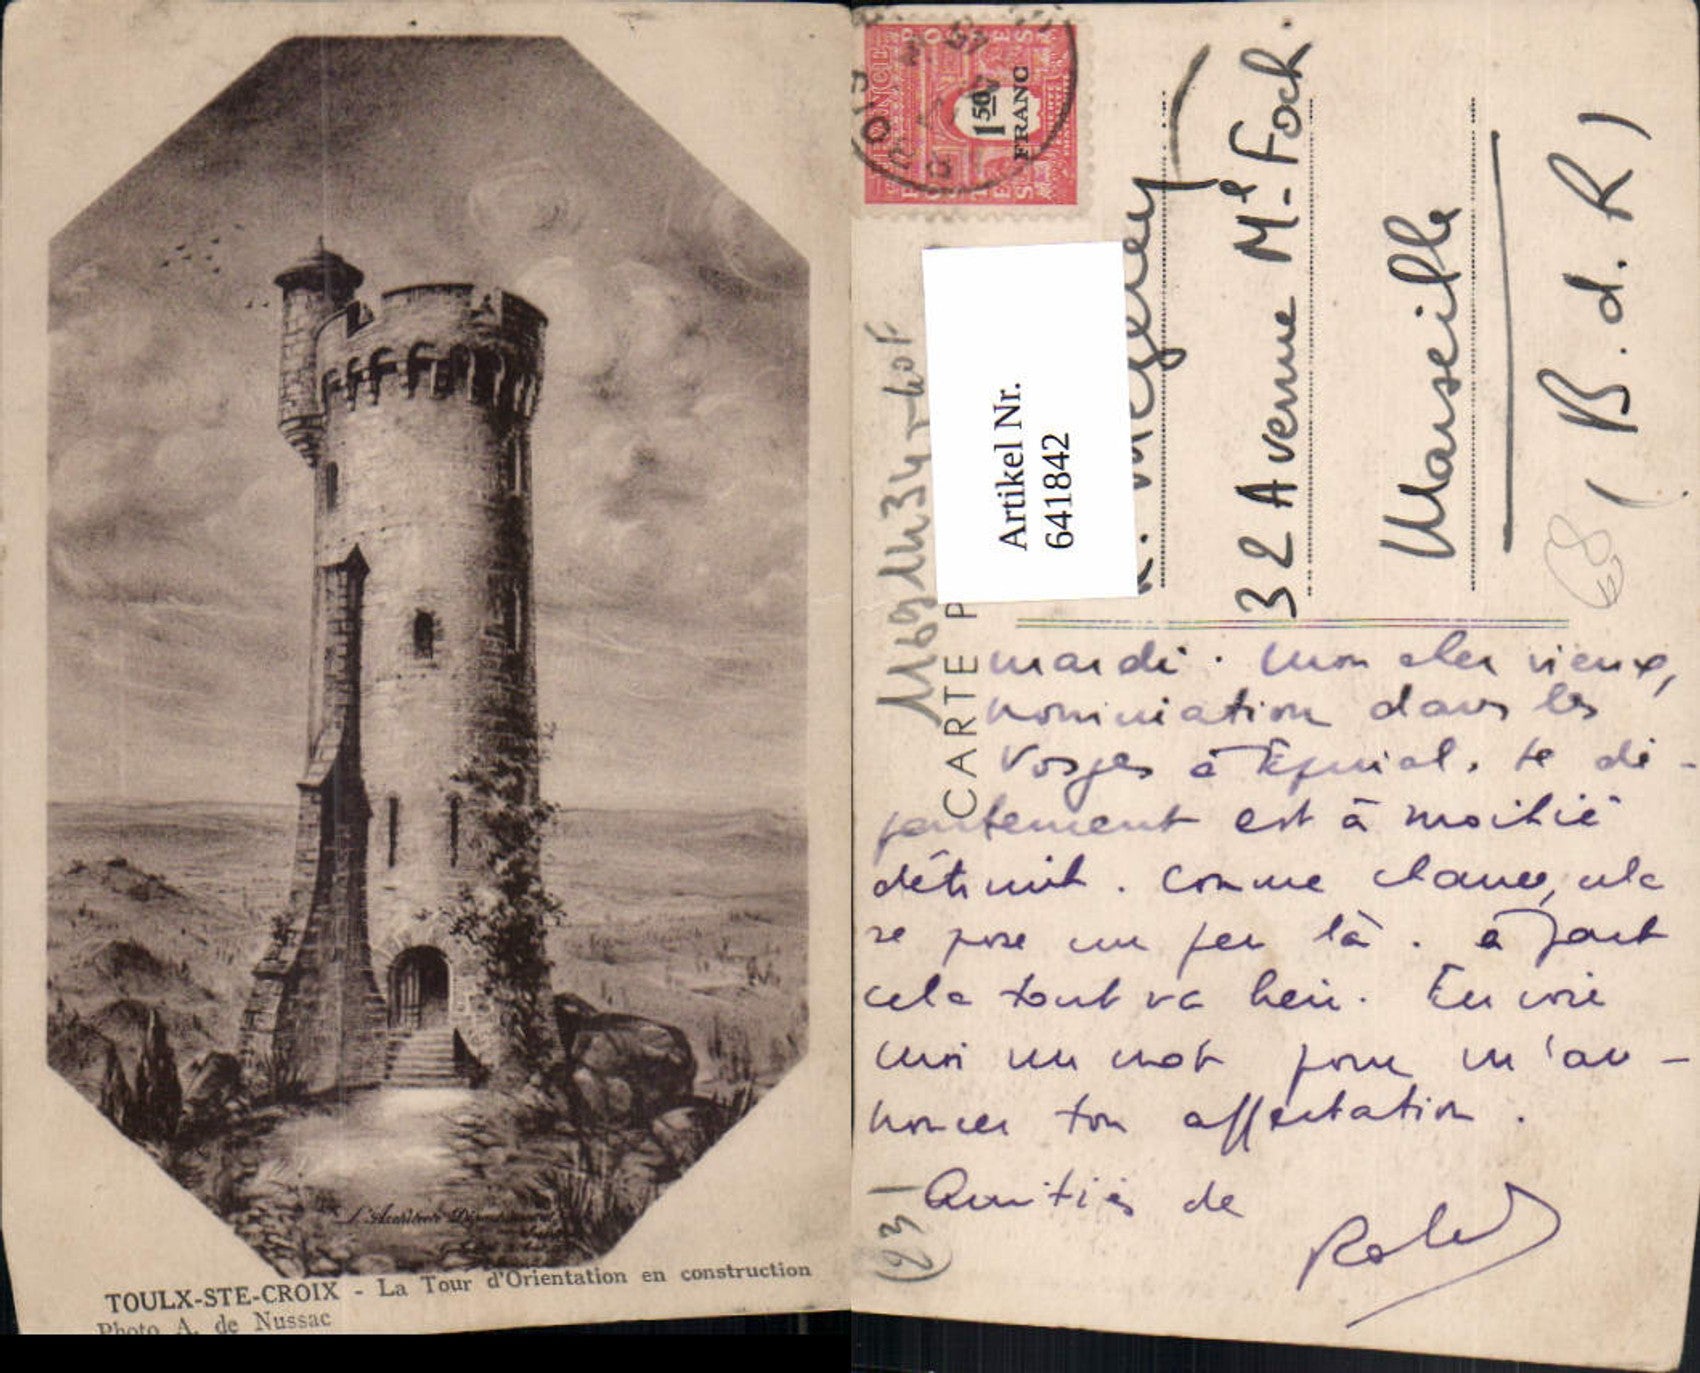 L'Architecte Départemental
TOULX-STE-CROIX - La Tour d'Orientation en construction
Photo A. de Nussac
POSTES
FRANCE
1 50
FRANC
Artikel Nr.
641842
CARTE P
32 Avenue Mal Foch.
Marseille
(B.d.R)
68
mardi. Mon cher vieux,
nomination dans les
Vosges à Epinal. Le dé-
partement est à moitié
détruit. Comme chance, cela
se pose un peu là. à part
cela tout va bien. Envoie
moi un mot pour m'an-
noncer ton affectation.
Amitiés de
Robert
(23)